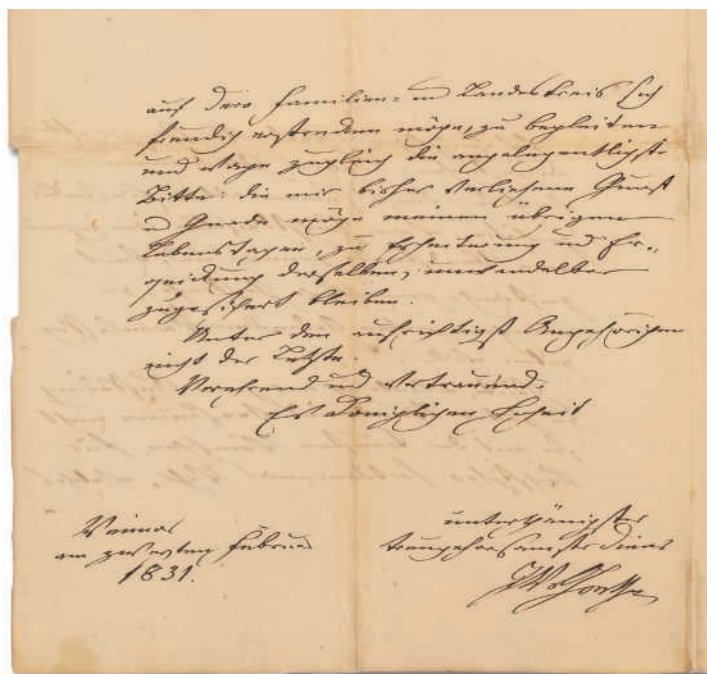 auf Dero Familien- u Landeskreis sich
freudig erstrecken möge, zu begleiten
und wage zugleich die angelegentlichste
Bitte: die mir bisher verliehene Gunst
u Gnade möge meinen übrigen
Lebenstagen, zu Erheiterung und Er-
quickung derselben, unwandelbar
zugesichert bleiben.
Unter den aufrichtigst Angehörigen
nicht der Letzte.
Verehrend und vertrauend.
Ew Königlichen Hoheit
unterthänigster
treugehorsamster Diener
JWvGoethe
Weimar
am Februar
1831.